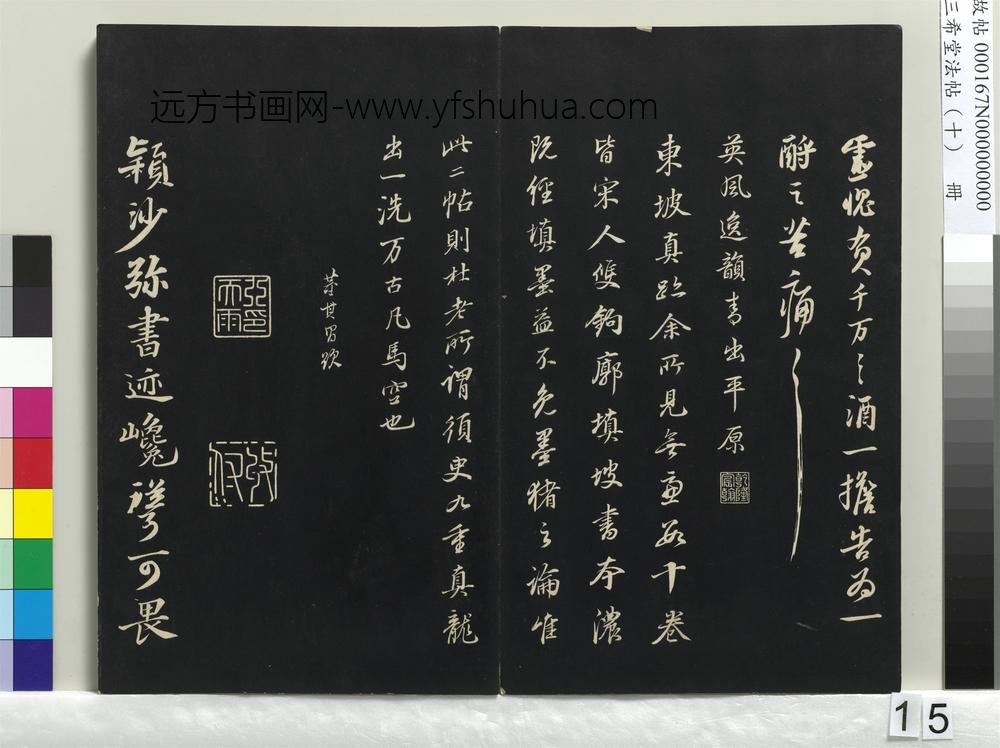 远方书画网-www.yfshuhua.com
故帖 000167N000000000
三希堂法帖（十） 冊
靈愧負千万々酒一擔告为一
酹之苦痛々
英風逸韻青出平原
乾隆宸翰
東坡真跡余所見無慮數十卷
皆宋人雙鉤廓填坡書本濃
既經填墨益不免墨猪之論唯
此二帖則杜老所謂須臾九重真龍
出一洗万古凡馬空也
董其昌題
潁沙弥書迹巉聳可畏
15